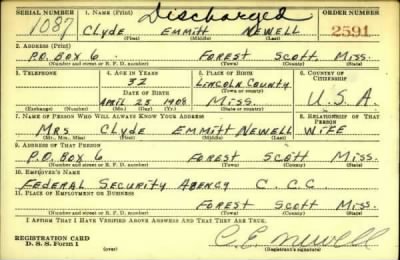 SERIAL NUMBER 1. NAME (Print) Discharged ORDER NUMBER
1087 Clyde Emmitt Newell 2591
(First) (Middle) (Last)
2. ADDRESS (Print)
P.O. Box 6 Forest Scott Miss.
(Number and street or R. F. D. number) (Town) (County) (State)
3. TELEPHONE 4. AGE IN YEARS 5. PLACE OF BIRTH 6. COUNTRY OF CITIZENSHIP
32 Lincoln County
DATE OF BIRTH (Town or county)
April 25 1908 Miss. U.S.A.
(Exchange) (Number) (Mo.) (Day) (Yr.) (State or country)
7. NAME OF PERSON WHO WILL ALWAYS KNOW YOUR ADDRESS 8. RELATIONSHIP OF THAT PERSON
Mrs Clyde Emmitt Newell Wife
(Mr., Mrs., Miss) (First) (Middle) (Last)
9. ADDRESS OF THAT PERSON
P.O. Box 6 Forest Scott Miss.
(Number and street or R. F. D. number) (Town) (County) (State)
10. EMPLOYER'S NAME
Federal Security Agency C.C.C
11. PLACE OF EMPLOYMENT OR BUSINESS
Forest Scott Miss.
(Number and street or R. F. D. number) (Town) (County) (State)
I AFFIRM THAT I HAVE VERIFIED ABOVE ANSWERS AND THAT THEY ARE TRUE.
REGISTRATION CARD
D. S. S. Form 1 C. E. Newell
(over) (Registrant's signature)